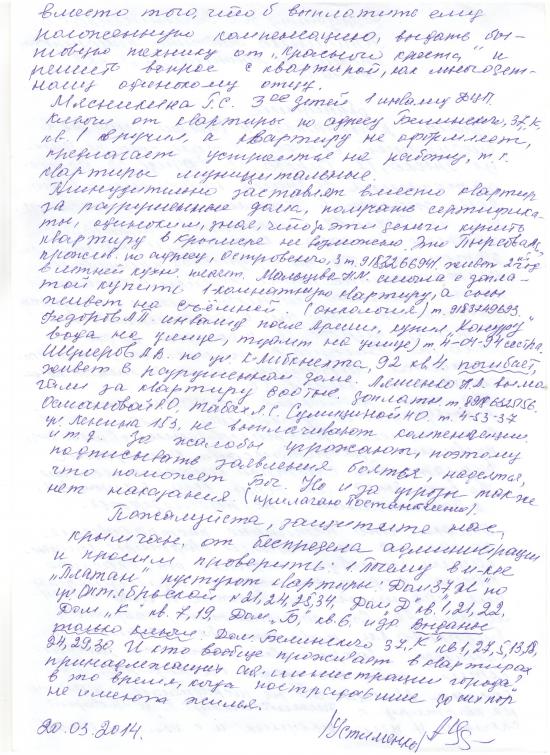 вместо того, чтоб выплатить ему
положенную компенсацию, выдать бы-
товую технику от „Красного креста" и
решить вопрос с квартирой, как многодет-
ному одинокому отцу.
Мясникина Г.С. 3ое детей 1 инвалид ДЦП.
Ключи от квартиры по адресу Белинского, 37, К,
кв. 1 вручил, а квартиру не оформляет,
предлагает устроиться на работу, т.г.
квартиры муниципальные.
Принудительно заставляет вместо квартир
за разрушенные дома, получать сертифика-
ты, одиноким, зная, что за эти деньги купить
квартиру в Крымске не возможно. Это
прожив. по адресу, Островского, 3 т. 9183266941. живет 2й год
в летней кухне. Мальцева Н.М. смогла с допла-
той купить 1 комнатную квартиру, а сын
живет на съёмной. (онкология) т. 9183449693.
Федоров А.П. инвалид после Армии, купил
вода на улице, туалет на улице) т. 4-04-94 сестра.
Шумеров А.В. по ул. К. Либкнехта, 92 кв. 4. погибает,
живет в разрушенном доме. Ляшенко вымо
гали за квартиру
Османовой Р.О, Сулициной Н.О. т. 4-53-37
ул. Ленина 153, не выплачивают компенсации
и т.д. За жалобы угрожают, поэтому
подписывать заявления боятся, надеются,
что поможет Бог. Но и за угрозы также
нет наказания (прилагаю Постановление).
Пожалуйста, защитите нас,
крымчан, от беспредела администрации
и просим проверить: 1. Почему в м-не
„Платан" пустуют квартиры: Дом 37 „И" по
ул. Октябрьской №21, 24, 25, 34, Дом „Д" кв. 1, 21, 22,
Дом „К" кв. 7, 19, Дом „Б" кв. 6, и до выданы
только ключи: Дом Белинского 37 „К" кв 1, 2,
24, 29, 30. И кто вообще проживает в квартирах
принадлежащих администрации города?
в то время, когда пострадавшие до сих пор
не имеют жилья.
20.03.2014. /Устименко/